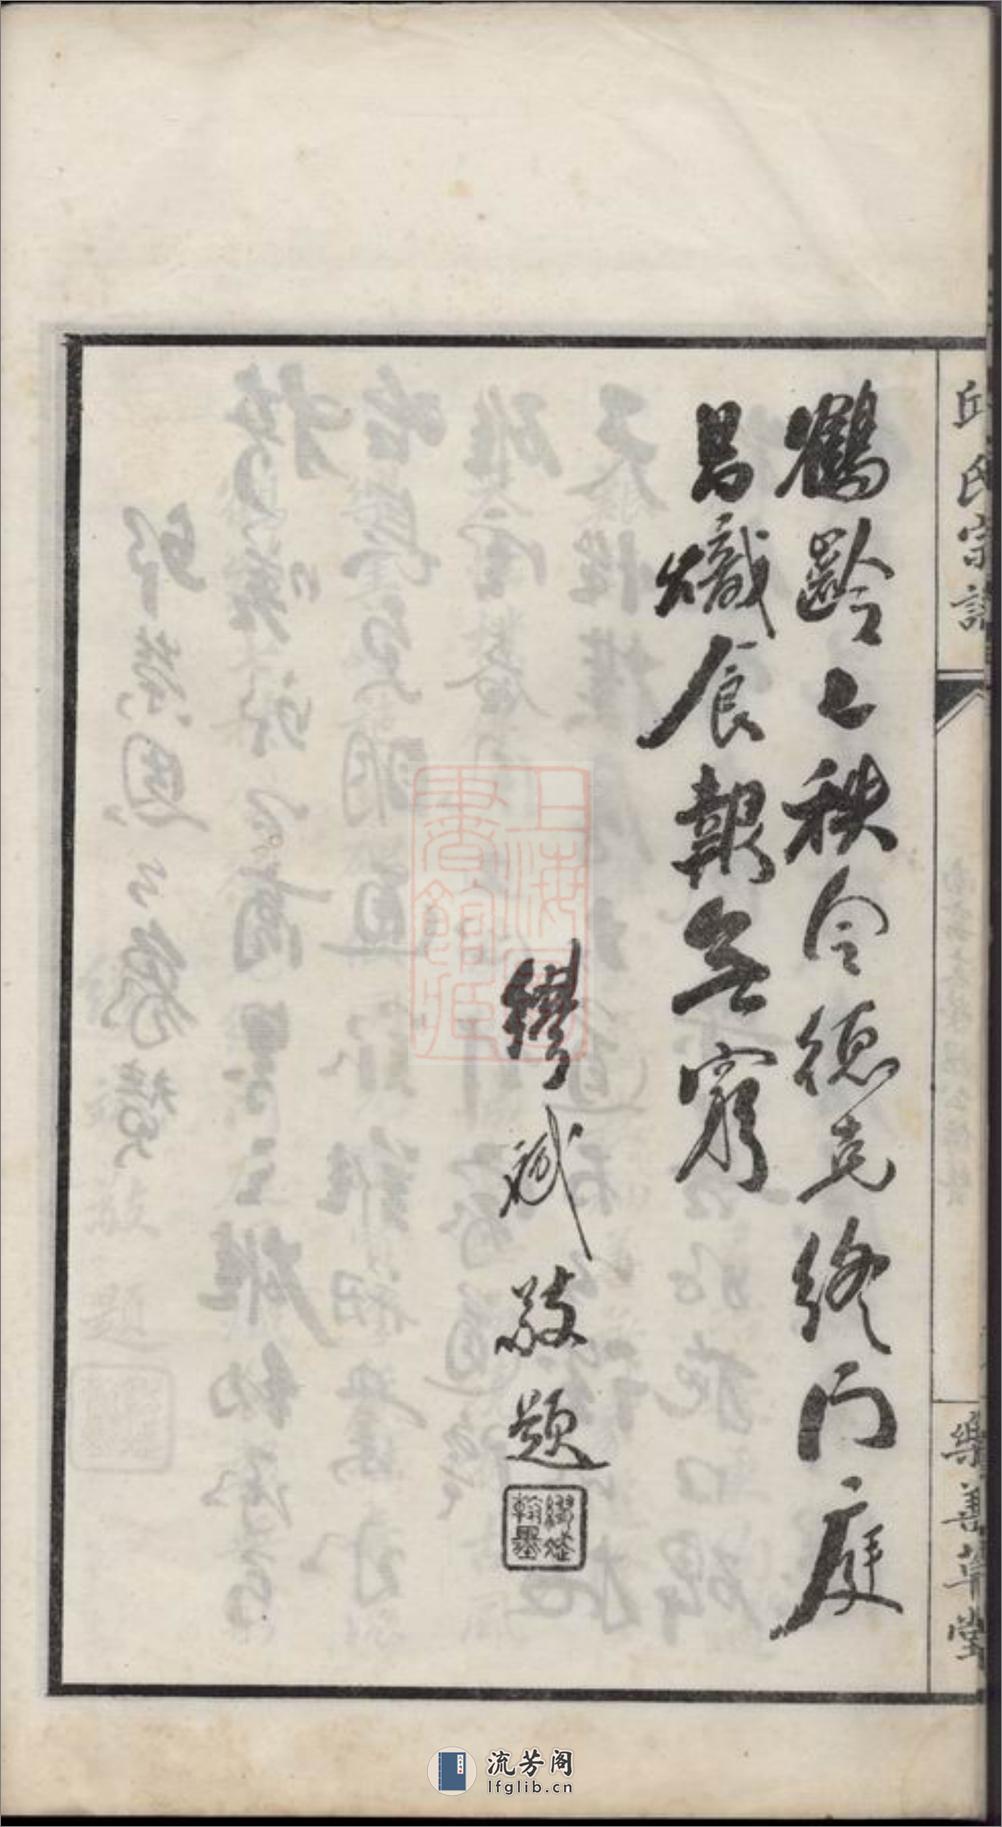 邱氏宗譜
樂善草堂
鶴齡八秩令德克終門庭
昌熾食報無窮
繆斌敬題
繆斌
翰墨
上海圖
書館藏
流芳阁
lfglib.cn